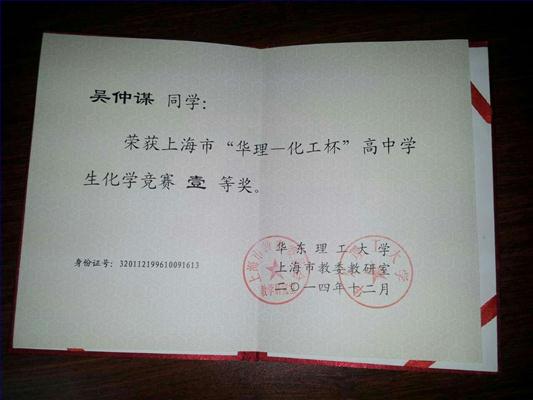 吴仲谋 同学：
荣获上海市“华理—化工杯”高中学
生化学竞赛 壹 等奖。
华东理工大学
上海市教委教研室
身份证号：320112199610091613
二〇一四年十二月